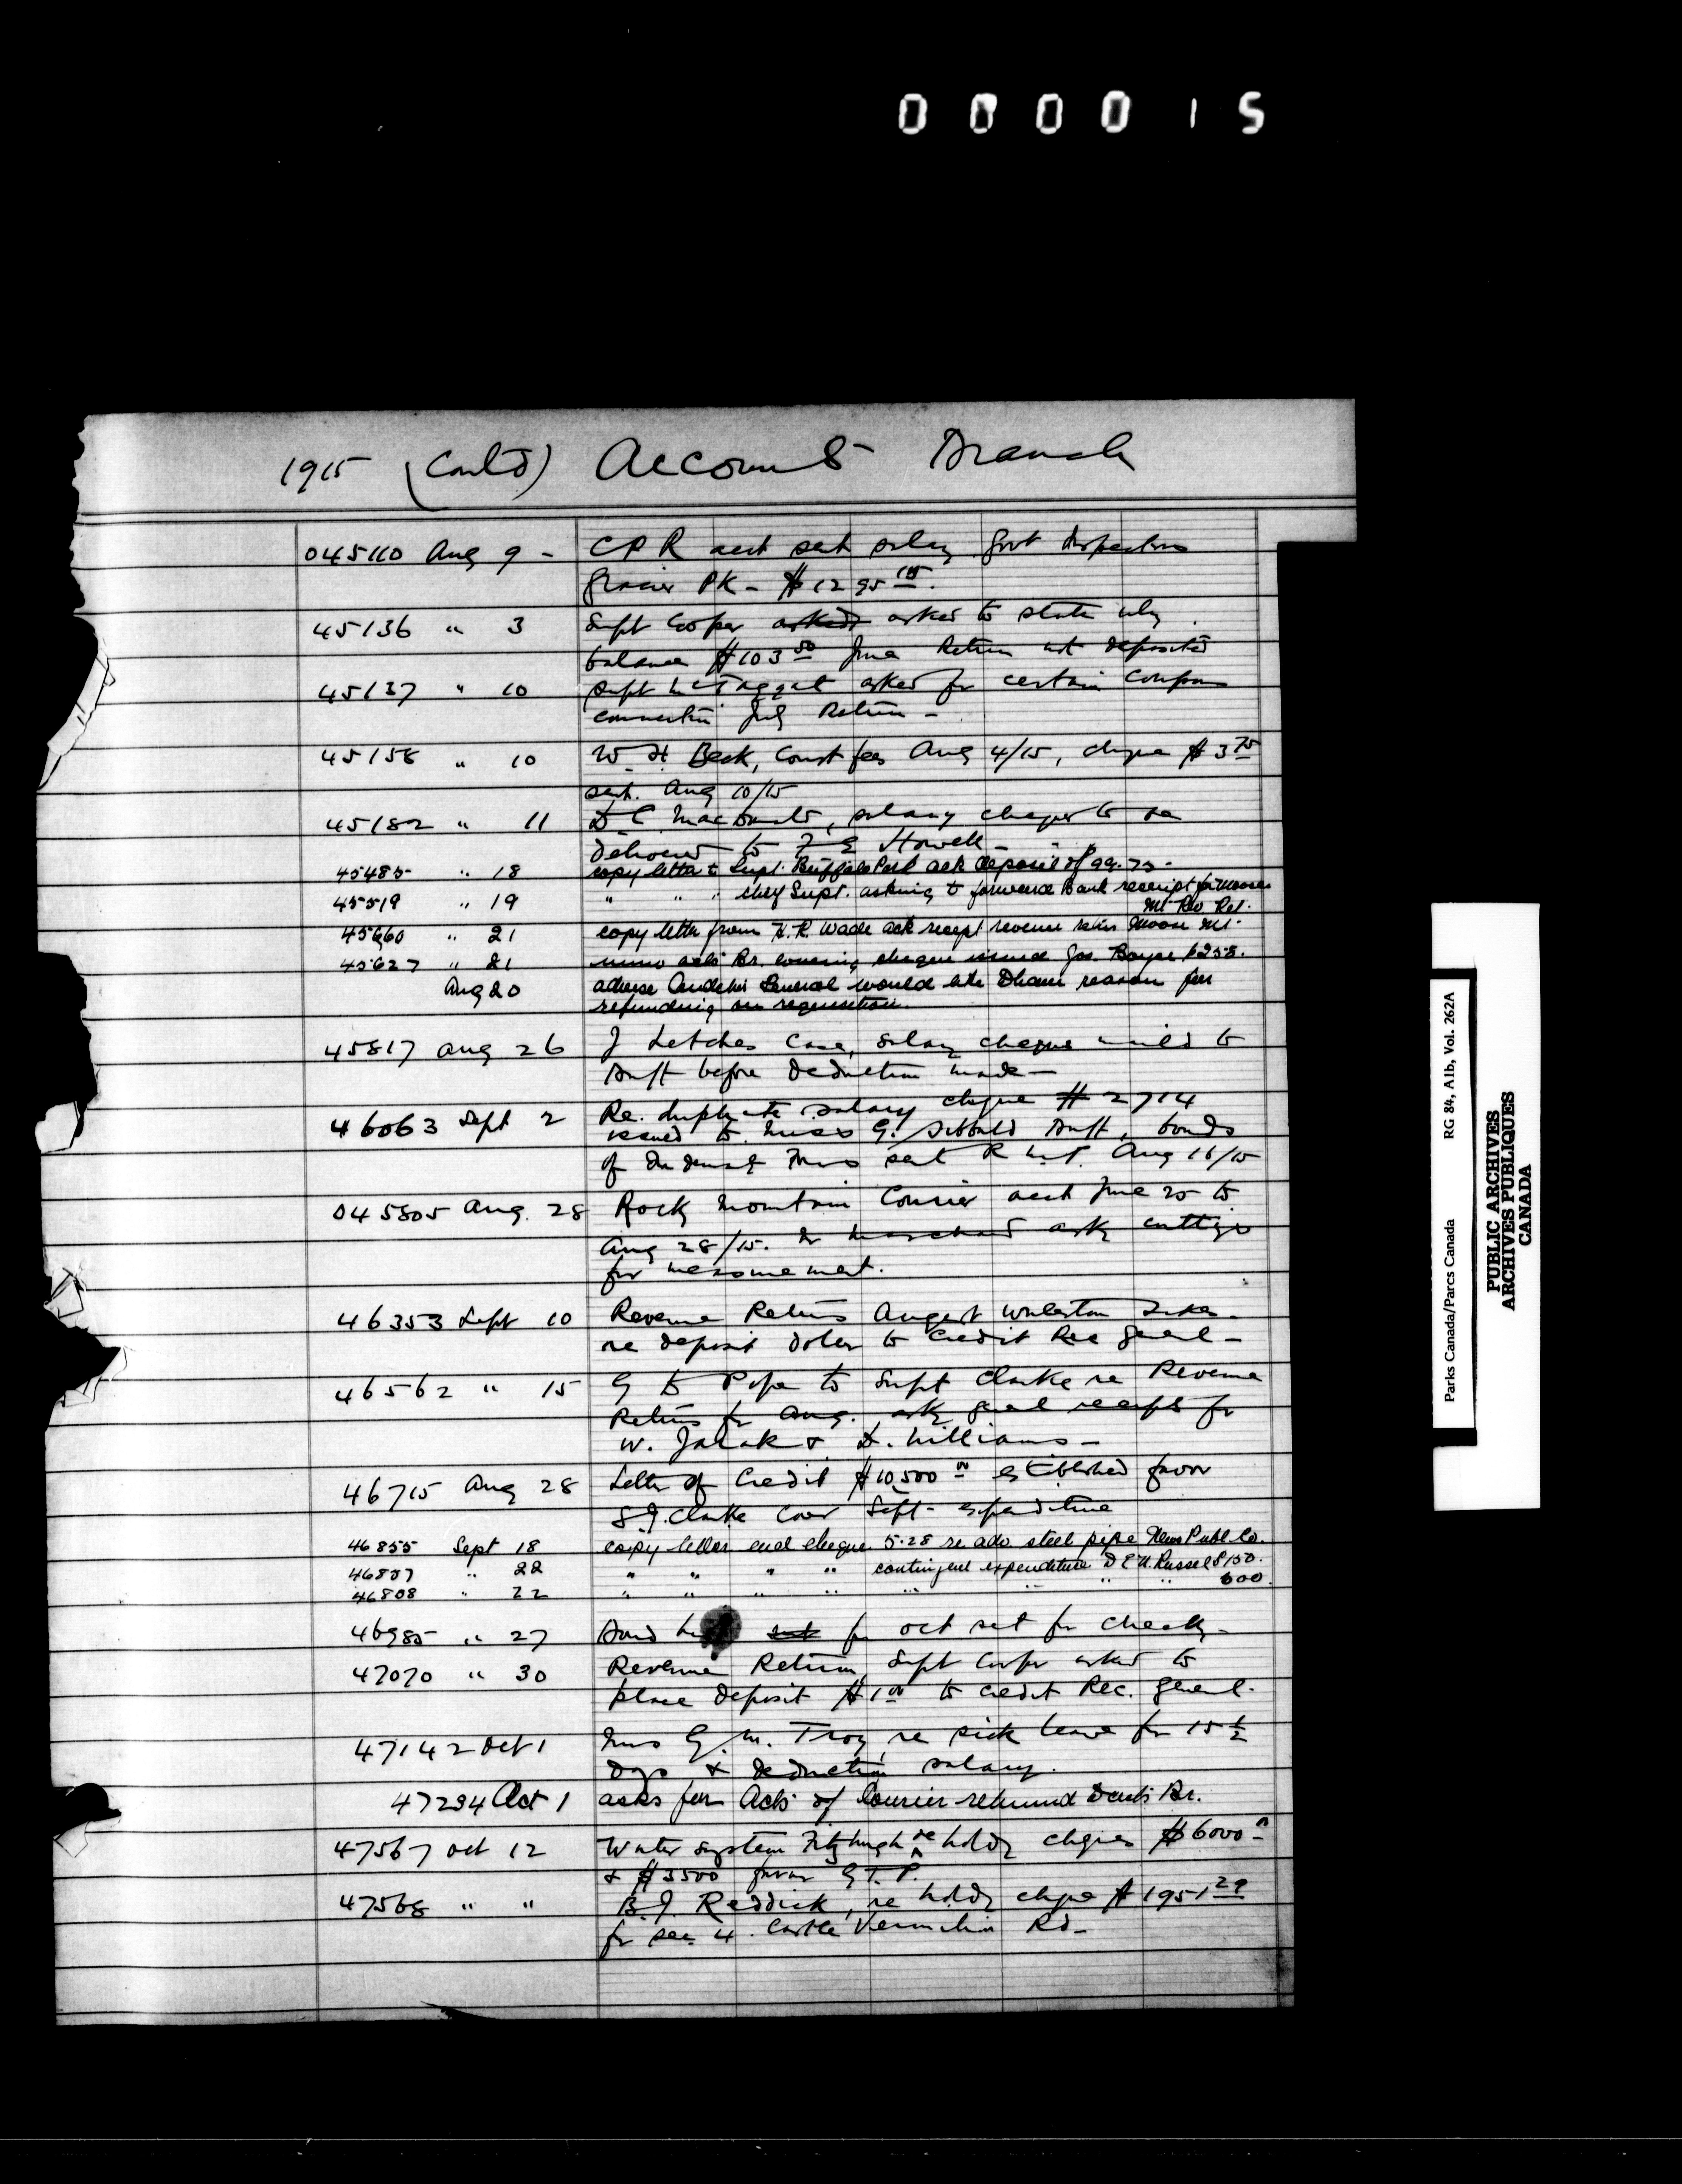 000015
1915 (Contd) Accounts Branch
045110 Aug 9 - CPR acct salary Govt Inspectors
Glacier PK - $1295
45136 " 3 Supt Cooper asked asked to state why
balance $103 50 June Return not deposited
45137 " 10 Supt McTaggart asked for certain Coupons
connection July Return -
45158 " 10 W. H. Beck, Court fees Aug 4/15, cheque $3 75
sent. Aug 10/15
45182 " 11 D. C. MacDonald, salary cheques to be
delivered to F E Howell -
45485 " 18 copy letter to Supt. Buffalo Park ack deposit of 99.75 -
45519 " 19 " " " Chief Supt. asking to forward Bank receipt for Moose
Mt Rev Ret.
45660 " 21 copy letter from H. R. Wade ack receipt revenue retn Moose Mt
45627 " 21 memo accts Br. covering cheque issued Jos. Boyce $255.
Aug 20 advise Auditor General would like Dhani reason for
refunding on requisition.
45817 Aug 26 J Letcher Case, salary cheque mailed to
before deduction made -
46063 Sept 2 Re. duplicate salary cheque # 2714
issued to Miss G. Sibbald, bonds
of sent Aug 16/15
045805 Aug. 28 Rocky Mountain Courier acct June 25 to
Aug 28/15. asks cuttings
for measurement.
46353 Sept 10 Revenue Returns August Waterton Lakes -
re deposit to Credit Rec General -
46562 " 15 to Supt Clarke re Revenue
Returns for Aug. ask receipts for
W. & D. Williams -
46715 Aug 28 Letter of Credit $10,500 00 established favor
S. J. Clarke Cover Sept - expenditure
46855 Sept 18 copy letter encl cheque 5.28 re adv steel pipe News Publ. Co.
46807 " 22 " " " " contingent expenditure D E M. Russell $150.
46808 " 22 " " " " " " " " 600.
46985 " 27 for Oct for check -
47070 " 30 Revenue Return, Supt Cooper asked to
place deposit $1 00 to credit Rec. General -
47142 Oct 1 Mrs G. M. Troy, re sick leave for 15 1/2
Dys & deduction salary.
47234 Oct 1 asks for Accts of Courier returned Br.
47567 Oct 12 Water system Fitzhugh re holdg cheques $6000 00
& $3500 favor G.T.P.
47568 " " B. J. Reddick, re holdg cheque $1951 29
for sec 4. Castle Vermilion Rd -
Parks Canada/Parcs Canada RG 84, A1b, Vol. 262A
PUBLIC ARCHIVES
ARCHIVES PUBLIQUES
CANADA